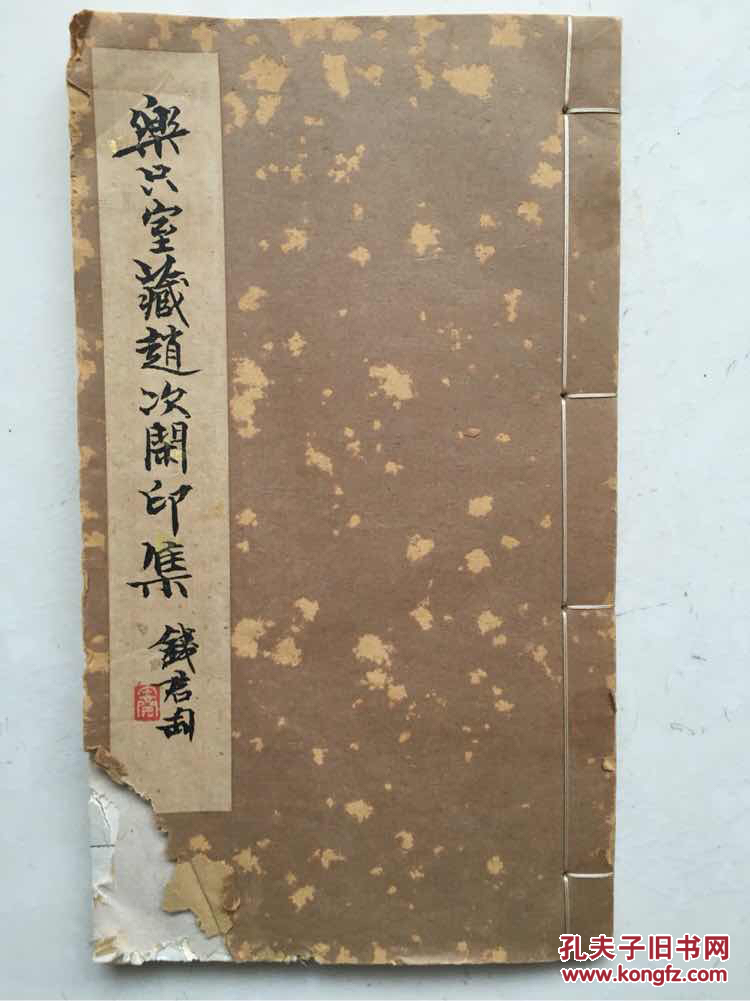 樂只室藏趙次閑印集
錢君匋
孔夫子旧书网
www.kongfz.com